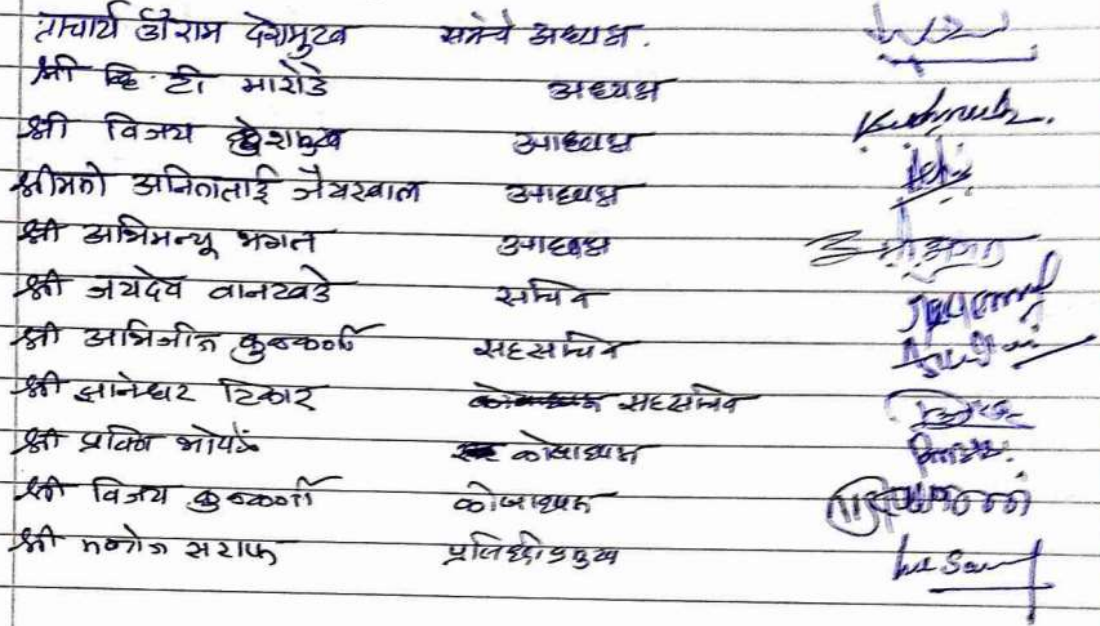 प्राचार्य श्रीराम देशमुख सभेचे अध्यक्ष.
श्री व्हि. टी मारोडे अध्यक्ष
श्री विजय देशमुख आध्यक्ष
श्रीमती अनिताताई जैयस्वाल आध्यक्ष
श्री अभिमन्यू भगत आध्यक्ष
श्री जयदेव वानखडे सचिव
श्री अभिजीत कुळकर्णी सहसचिव
श्री ज्ञानेश्वर टिकार सहसचिव
श्री प्रविण भोपळे कोषाध्यक्ष
श्री विजय कुळकर्णी कोषाध्यक्ष
श्री मनोज सराफ प्रसिध्दीप्रमुख